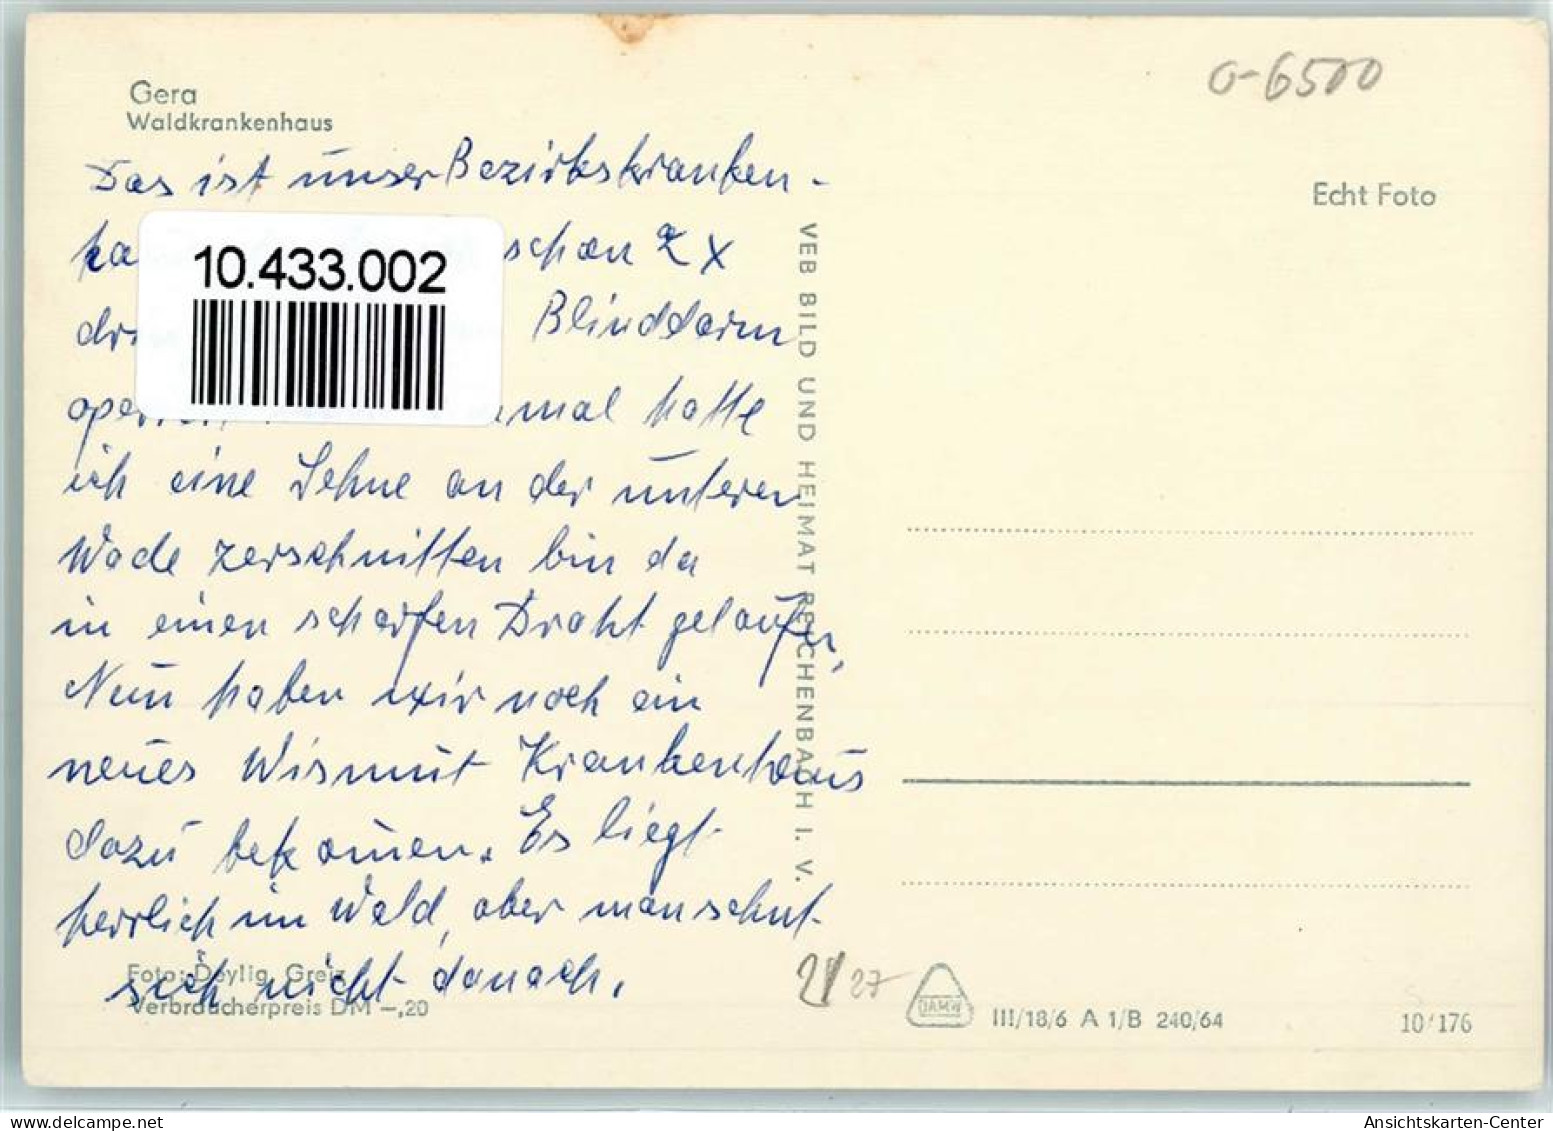 Gera
Waldkrankenhaus
Das ist unser Bezirkskranken-
schon 2 x
Blinddarm
hatte
ich eine Sehne an der unteren
Wade zerschnitten bin da
in einen scharfen Draht gelaufen,
Nun haben wir noch ein
neues Wismut Krankenhaus
dazu bekommen. Es liegt
herrlich im Wald, aber man sehnt
sich nicht danach.
Foto: Deylig, Greiz
Verbraucherpreis DM –,20
VEB BILD UND HEIMAT REICHENBACH I. V.
10.433.002
O-6500
Echt Foto
27
DAMW
III/18/6 A 1/B 240/64
10/176
delcampe.net
Ansichtskarten-Center